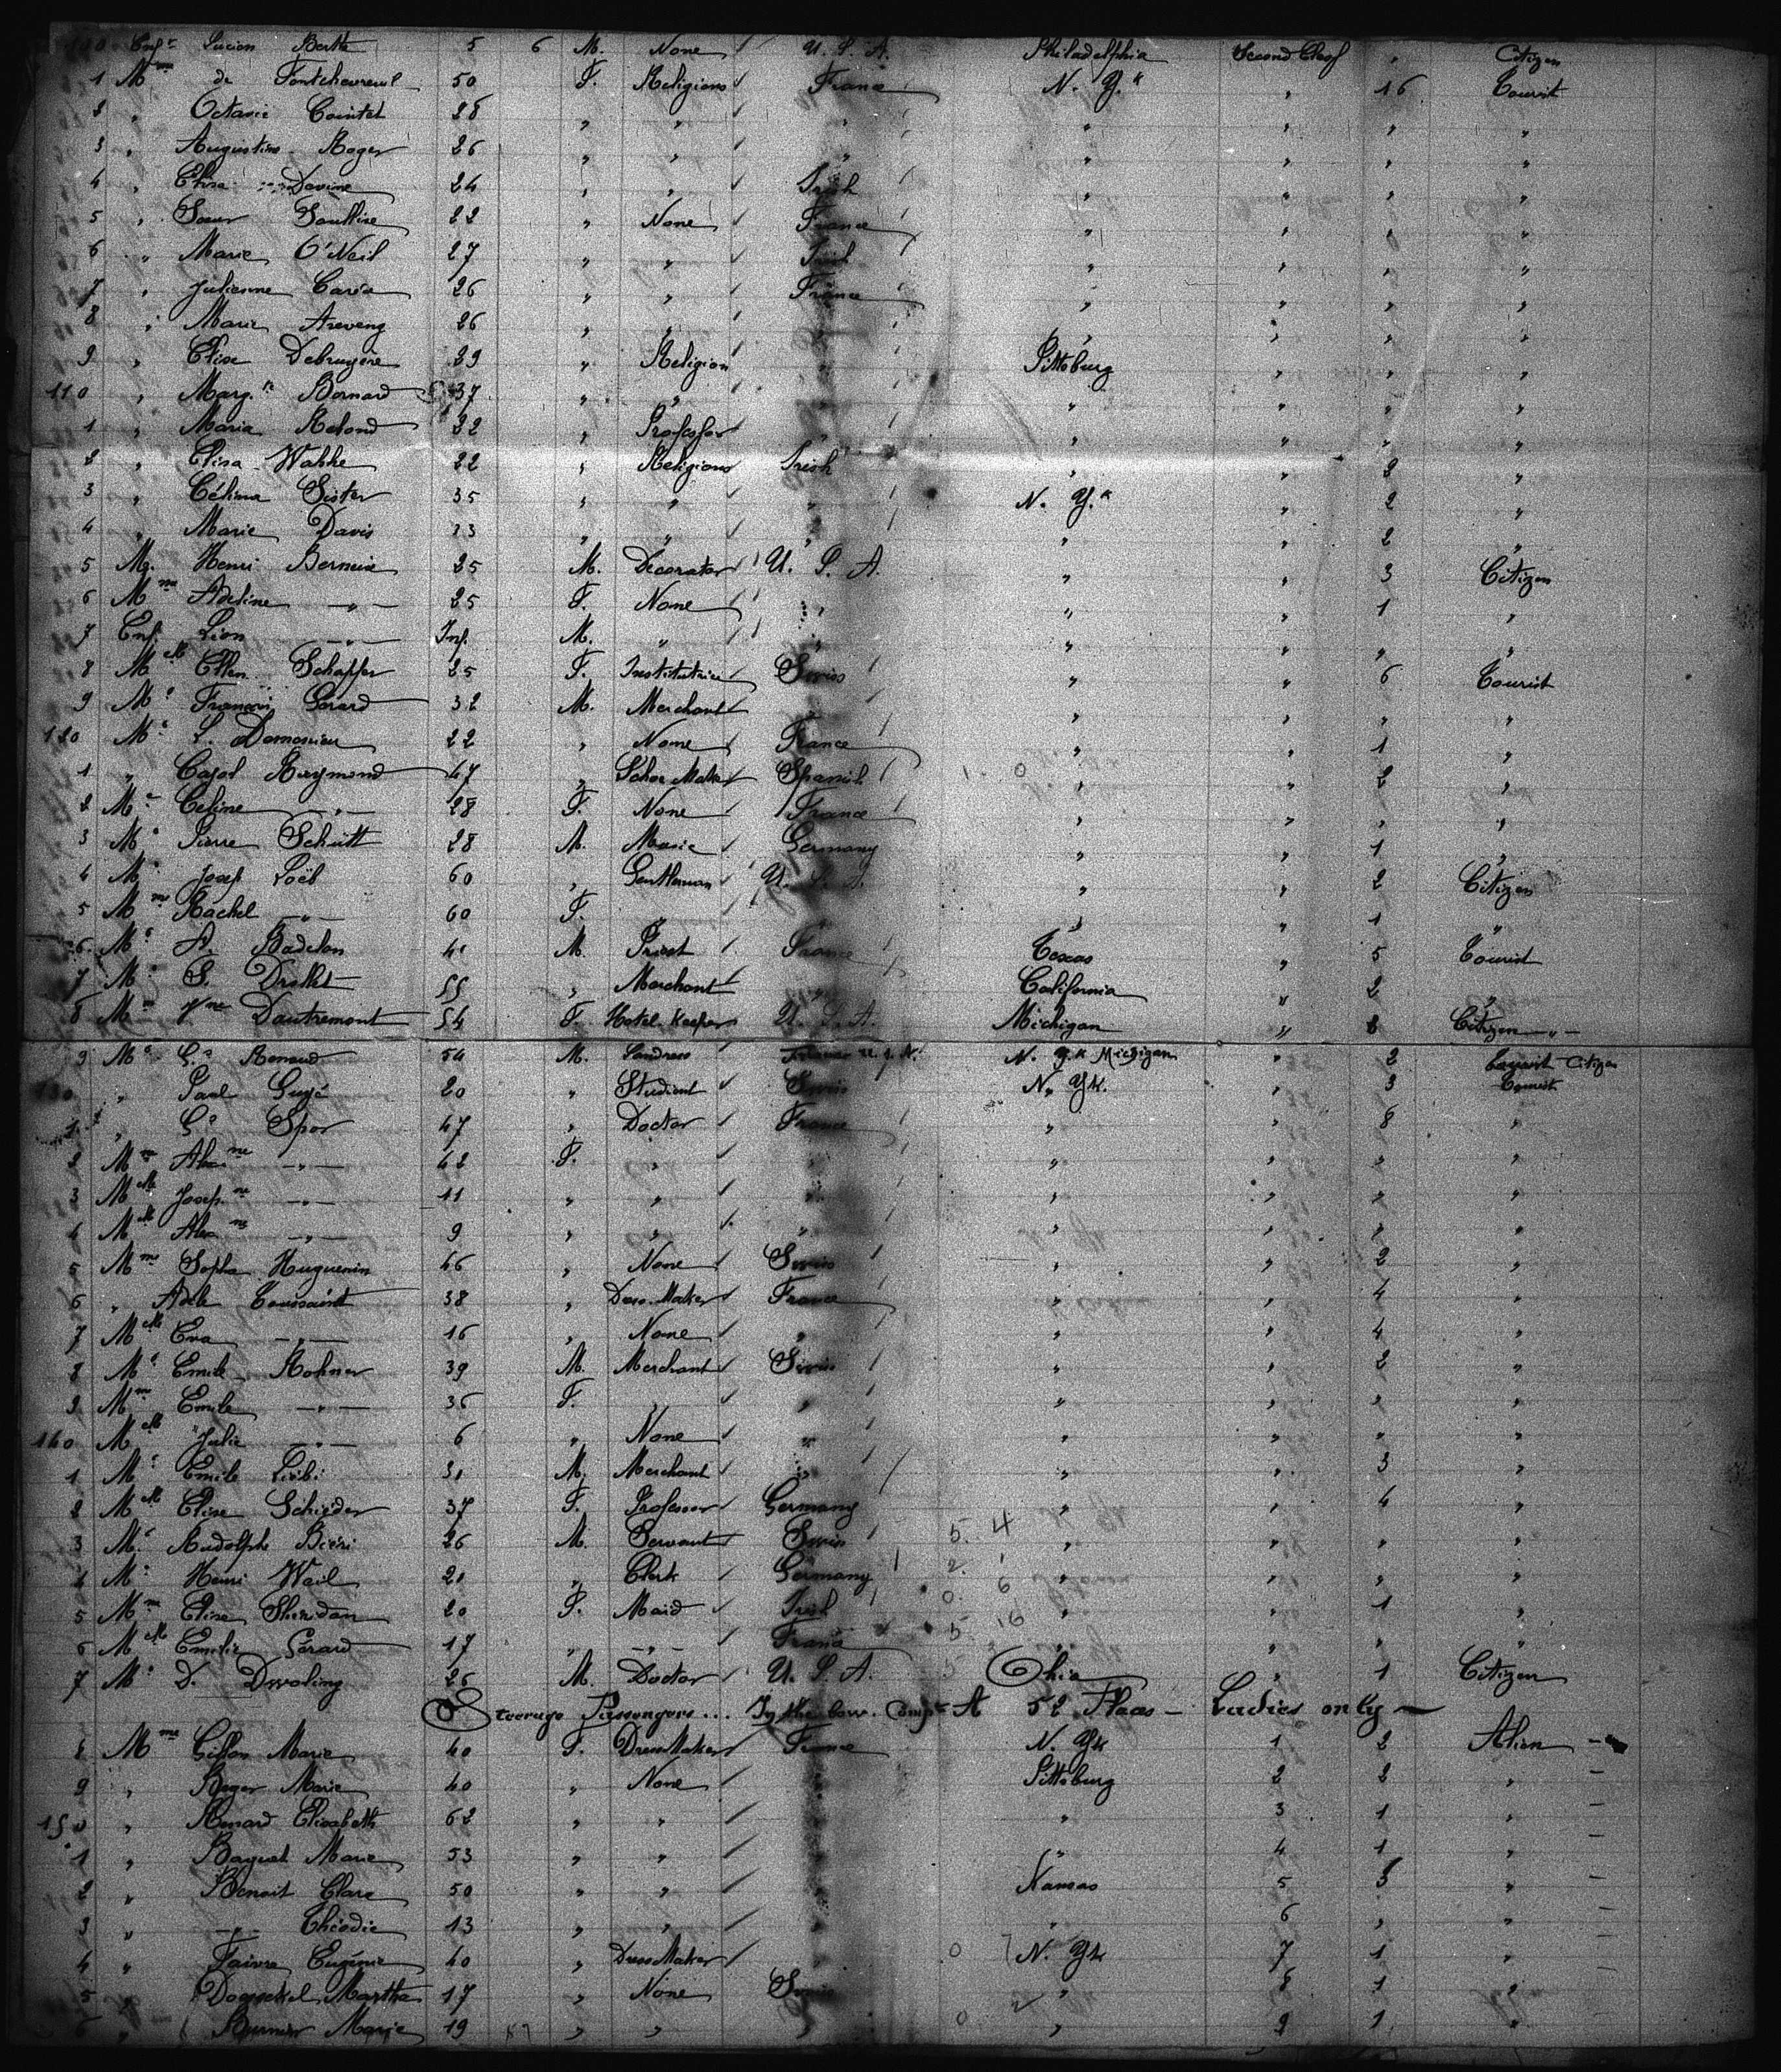 100 Enft Lucien Berthe 5 6 M. None U. S. A. Philadelphia Second Class " Citizen
1 Mme de Fontchevreul 50 F. Religious France N. Y.k " 16 Tourist
2 " Octavie Cointet 28 " " " " " " "
3 " Augustine Roger 26 " " " " " " "
4 " Elisa Devine 24 " " Irish " " " "
5 " Soeur 22 " None France " " " "
6 " Marie O'Neil 27 " " Irish " " " "
7 " Julienne 26 " " France " " " "
8 " Marie 26 " " " " " " "
9 " Elise Debruyère 29 " Religion " Pittsburg " " "
110 " Marg.te Bornard 37 " " " " " " "
1 " Maria 22 " Professor " " " " "
2 " Elisa 22 " Religious Irish " " 2 "
3 " Célima Sister 35 " " " N. Y.k " 2 "
4 " Marie Davis 23 " " " " " 2 "
5 Mr. Henri 25 M. Decorator U. S. A. " " 3 Citizen
6 Mme Adeline —"— 25 F. None " " " 1 "
7 Enf. Léon —"— Inf. M. " " " " " "
8 Melle Ellen Schaffer 25 F. Institutrice Swiss " " 6 Tourist
9 Mr François Gérard 32 M. Merchant " " " " "
120 Mr L. 22 " None France " " 1 "
1 " Casal Raymond 47 " Schoe Maker Spanish " " 2 "
2 Me Celine —"— 28 F. None France " " " "
3 Mr Pierre Schütt 28 M. Music Germany " " 1 "
4 Mr Josef Loëb 60 " Gentleman U. S. A. " " 2 Citizen
5 Mme Rachel —"— 60 F. " " " " 1 "
6 Mr A. Badelon 41 M. Priest France Texas " 5 Tourist
7 Mr S. Drollet 55 " Merchant " California " 2 "
8 Mme Vve Dautremont 54 F. Hotel Keeper U. S. A. Michigan " 8 Citizen —"—
9 Mr Gs Renaud 54 M. France U. S. A. N. Y.k Michigan " 2 Tourist Citizen
130 " Paul Guyé 20 " Student Swiss N. Yk. " 3 Tourist
1 " Gs Spor 47 " Doctor France " " 8 "
2 Mme —"— 42 F. " " " " " "
3 Melle Josephne —"— 11 " " " " " " "
4 Melle —"— 9 " " " " " " "
5 Mme Sophie Huguenin 46 " None Swiss " " 2 "
6 " Adèle Toussaint 38 " Dress Maker France " " 4 "
7 Melle Eva —"— 16 " None " " " 4 "
8 Mr Emile Rohner 39 M. Merchant Swiss " " 2 "
9 Mme Emile —"— 36 F. " " " " " "
140 Melle Julie —"— 6 " None " " " " "
1 Mr Emile 31 M. Merchant " " " 3 "
2 Melle Elise Schröder 37 F. Professor Germany " " 4 "
3 Mr Rudolphe Bieri 26 M. Servant Swiss 5. 4 " " " "
4 Mr Henri Weil 20 " Clerk Germany 2. 1 " " " "
5 Mme Elise Sheridan 20 F. Maid Irish 0 6 " " 1 "
6 Melle Emilie Gérard 17 " —"— France 5 16 " " " "
7 Mr D. Dwoling 26 M. Doctor U. S. A. Ohio " 1 Citizen
Steerage Passengers ... In the bow. Compt A 52 Places — Ladies only —
8 Mme Gillon Marie 40 F. Dress Maker France N. Yk 1 2 Alien —
9 " Roger Marie 40 " None " Pittsburg 2 2 " —
150 " Renard Elisabeth 62 " " " " 3 1 " —
1 " Baquet Marie 53 " " " " 4 1 " —
2 " Benoit Clare 50 " " " Kansas 5 3 " —
3 " —"— Théodie 13 " " " " 6 " " —
4 " Faivre Eugénie 40 " Dress Maker " 0 7 N. Yk 7 1 " —
5 " Martha 17 " None Swiss " 8 1 " —
6 " Marie 19 " " " 0 " 9 1 "